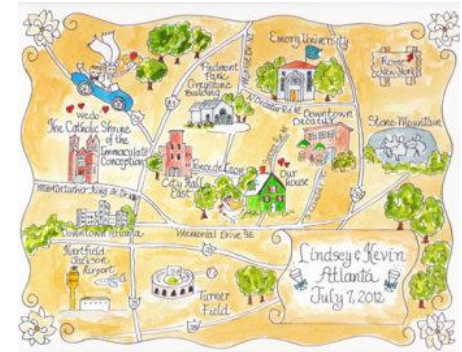 Emory University
Rome
& New York
Piedmont
Park
Greystone
Building
Downtown
Decatur
Stone Mountain
Wedo
The Catholic Shrine
of the
Immaculate
Conception
Ponce de Leon
Our
house
City Hall
East
Downtown Atlanta
Memorial Drive SE
Hartfield
Jackson
Airport
Turner
Field
Lindsey & Kevin
Atlanta
July 7, 2012